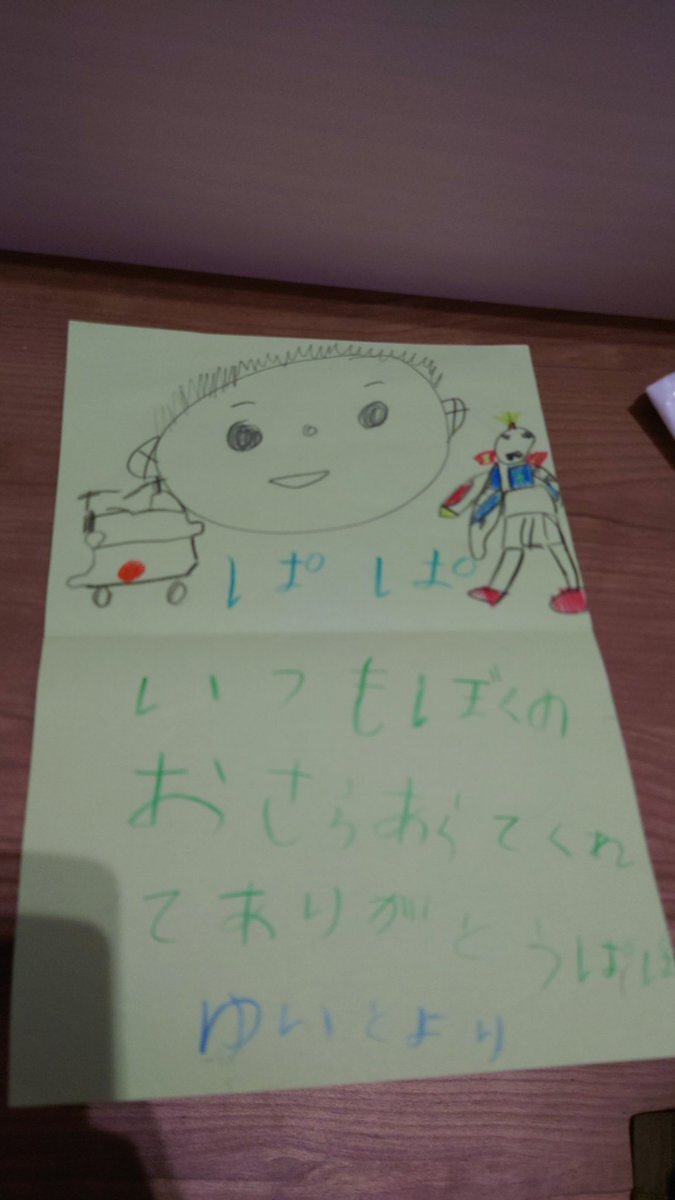 ぱぱ
いつもぼくの
おさらあらてくれ
てありがとうぱぱ
ゆいとより